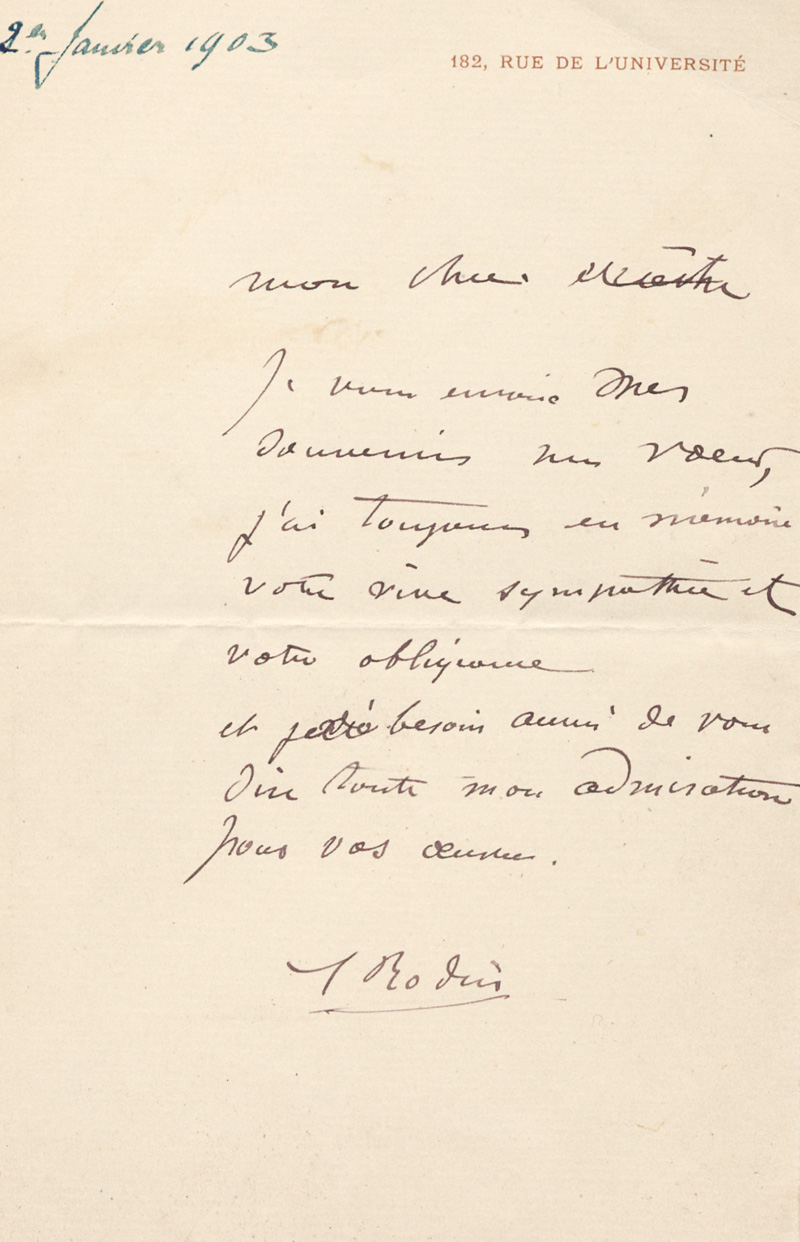 2er Janvier 1903
182, RUE DE L'UNIVERSITÉ
mon cher
Je vous envoie mes
souvenirs mes vœux,
j'ai toujours en mémoire
votre vive sympathie et
votre obligeance
et j'ai besoin aussi de vous
dire toute mon admiration
pour vos œuvres.
A Rodin